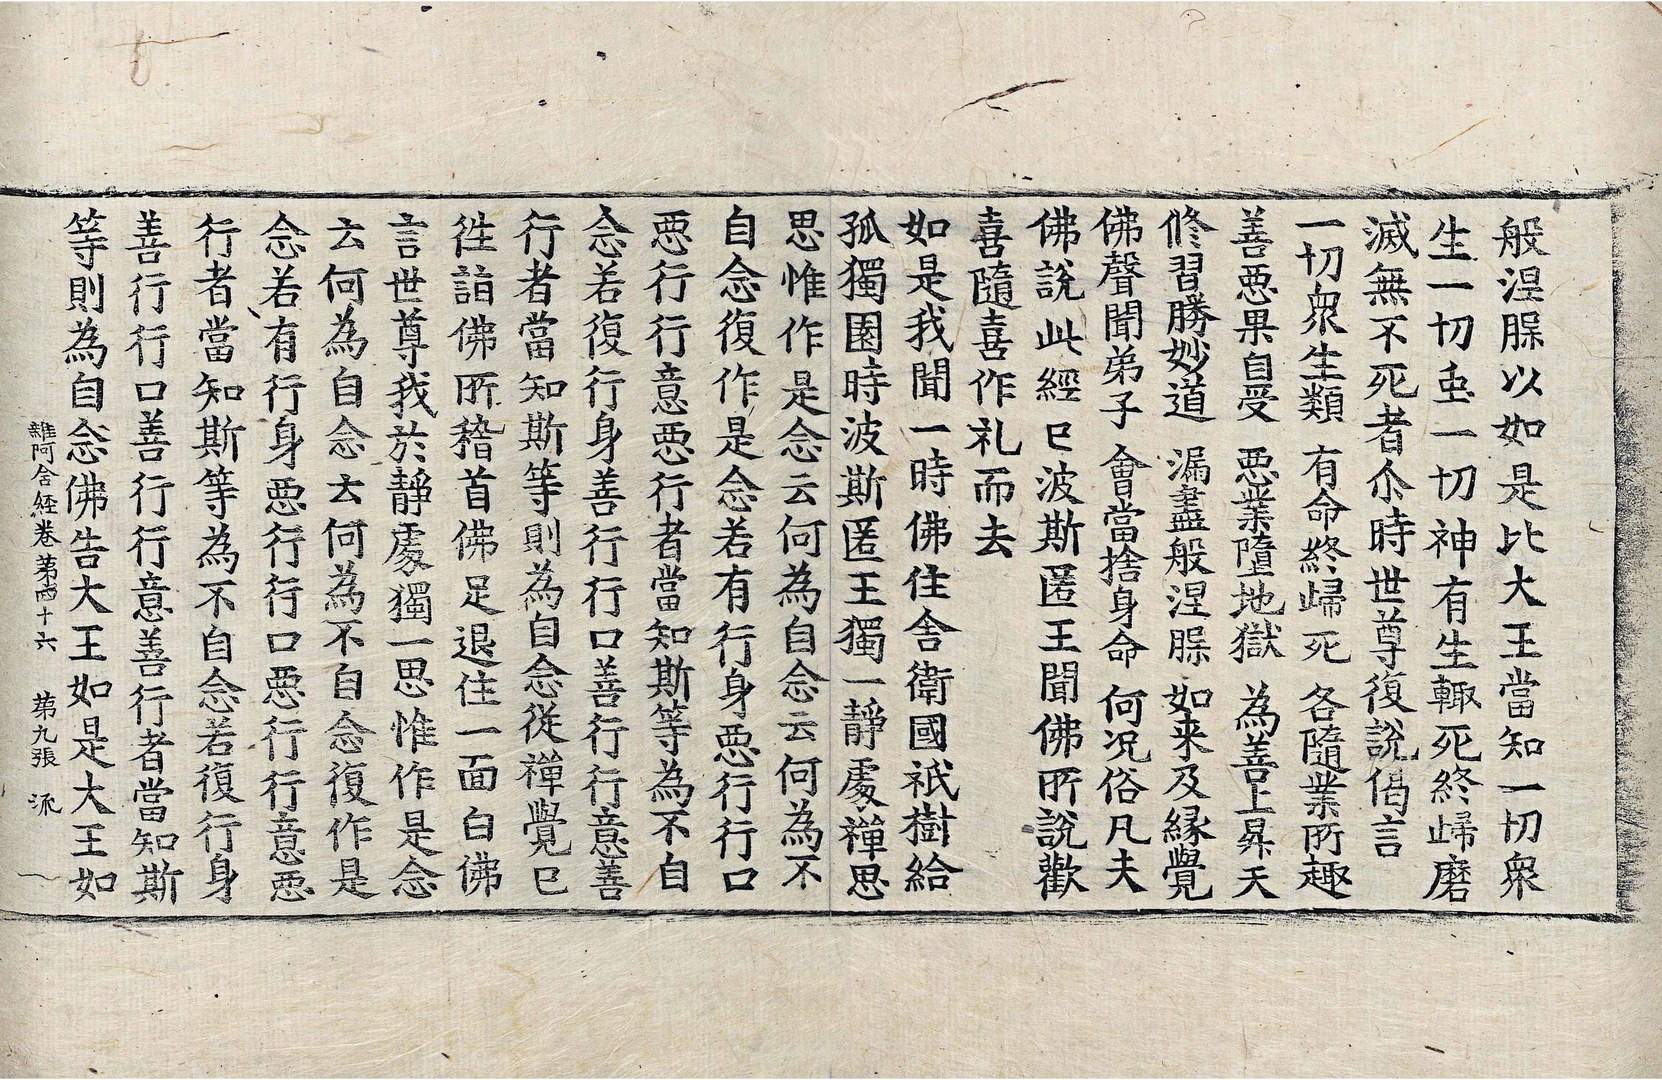 般涅脲以如是比大王當知一切衆
生一切䖝一切神有生輙死終歸磨
滅無不死者尒時世尊復說偈言
一切衆生類 有命終歸死 各隨業所趣
善惡果自受 惡業墮地獄 為善上昇天
修習勝妙道 漏盡般涅脲 如来及縁覺
佛聲聞弟子 會當捨身命 何況俗凡夫
佛說此經已波斯匿王聞佛所說歡
喜隨喜作礼而去
如是我聞一時佛住舍衛國祇樹給
孤獨園時波斯匿王獨一靜處禪思
思惟作是念云何為自念云何為不
自念復作是念若有行身惡行行口
惡行行意惡行者當知斯等為不自
念若復行身善行行口善行行意善
行者當知斯等則為自念從禪覺已
徃詣佛所稽首佛足退住一面白佛
言世尊我於靜處獨一思惟作是念
云何為自念云何為不自念復作是
念若有行身惡行行口惡行行意惡
行者當知斯等為不自念若復行身
善行行口善行行意善行者當知斯
等則為自念佛告大王如是大王如
雜阿含經卷第四十六 第九張 㲼